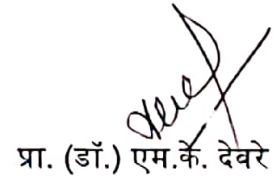 प्रा. (डॉ.) एम.के. देवरे